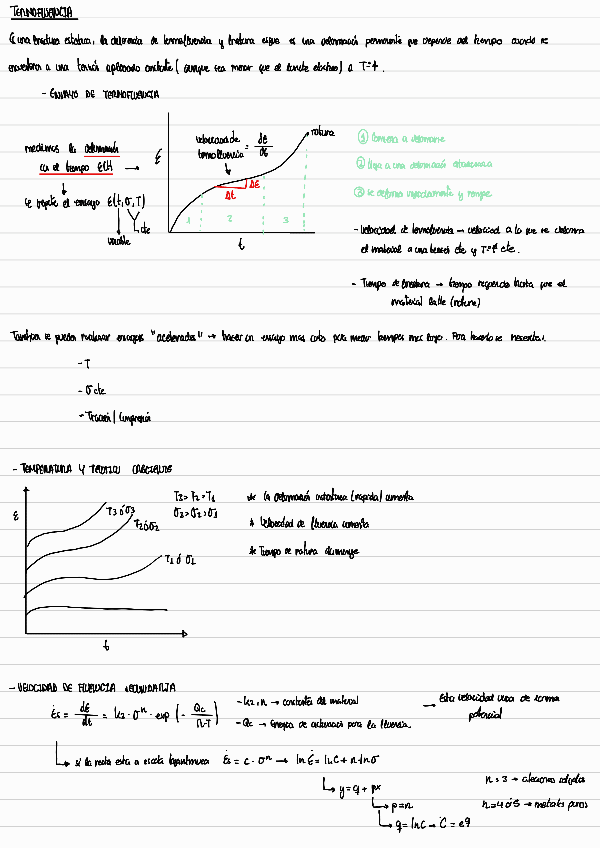 TERMOFLUENCIA
Es una fractura estática, la diferencia de termofluencia y fractura sigue es una deformación permanente que depende del tiempo cuando se
encuentra a una tensión aplicada constante (aunque sea menor que el límite elástico) a T=
- ENSAYO DE TERMOFLUENCIA
medimos la deformación
en el tiempo ε(t)
Se repite el ensayo ε(t, σ, T)
variable
cte
ε
velocidad de termofluencia = dε/dt
rotura
Δε
Δt
1 2 3
t
① Comienza a deformarse
② llega a una deformación estacionaria
③ se deforma rápidamente y rompe
- Velocidad de termofluencia → velocidad a la que se deforma
el material a una tensión cte y T= cte.
- Tiempo de fractura → tiempo requerido hasta que el
material falle (rotura)
También se pueden realizar ensayos "acelerados" → hacer un ensayo mas corto para tiempos mas largo. Para hacerlo se necesita:
- T
- σ cte
- Tracción / Compresión
- TEMPERATURA Y TENSIÓN CRECIENTE
ε
T3 ó σ3
T2 ó σ2
T1 ó σ1
t
T3 > T2 > T1
σ3 > σ2 > σ1
* La deformación instantánea (rápida) aumenta
* Velocidad de fluencia aumenta
* Tiempo de rotura disminuye
- VELOCIDAD DE FLUENCIA SECUNDARIA
ε̇s = dε/dt = k2 · σⁿ · exp (- Qc/R·T)
- k2, n → constantes del material
- Qc → Energía de activación para la fluencia.
→ Esta velocidad varia de forma
potencial
↳ si la recta esta a escala logarítmica ε̇s = c · σⁿ → ln ε̇ = ln C + n · ln σ
↳ y = q + px
↳ p = n
↳ q = ln C → C = e^q
n = 3 → aleaciones
n = 4 ó 5 → metales puros